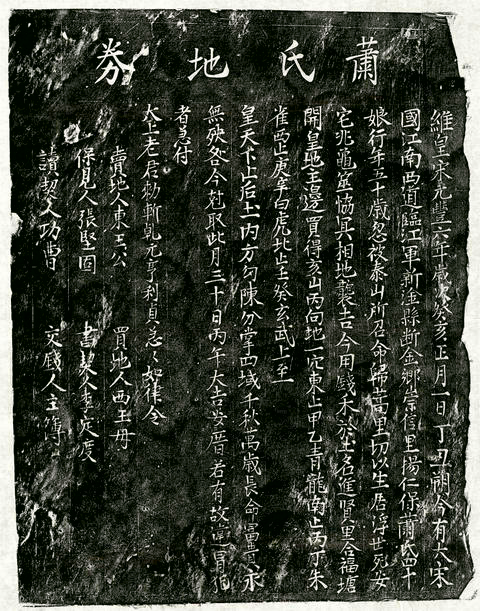 蕭氏地券
維皇宋元豐六年歲次癸亥正月一日丁丑朔今有大宋
國江南西道臨江軍新淦縣斷金鄉崇信里揚仁保蕭氏四十
娘行年五十歲忽被泰山所召命歸蒿里切以生居浮世死安
宅兆龜筮協其相地襲吉今用錢禾於土名進賢里合福塘
開皇地主邊買得亥山丙向地一穴東止甲乙青龍南止丙丁朱
雀西止庚辛白虎北止壬癸玄武上至
皇天下止后土內方勾陳分掌四域千秋萬歲長命 永
無殃咎今 取此月三十日丙午大吉安厝若有故 冒犯
者急付
太上老君勅斬乾元亨利貞急々如律令
賣地人東王公 買地人西王母
保見人張堅固 書契人李定度
讀契人功曹 交錢人主簿